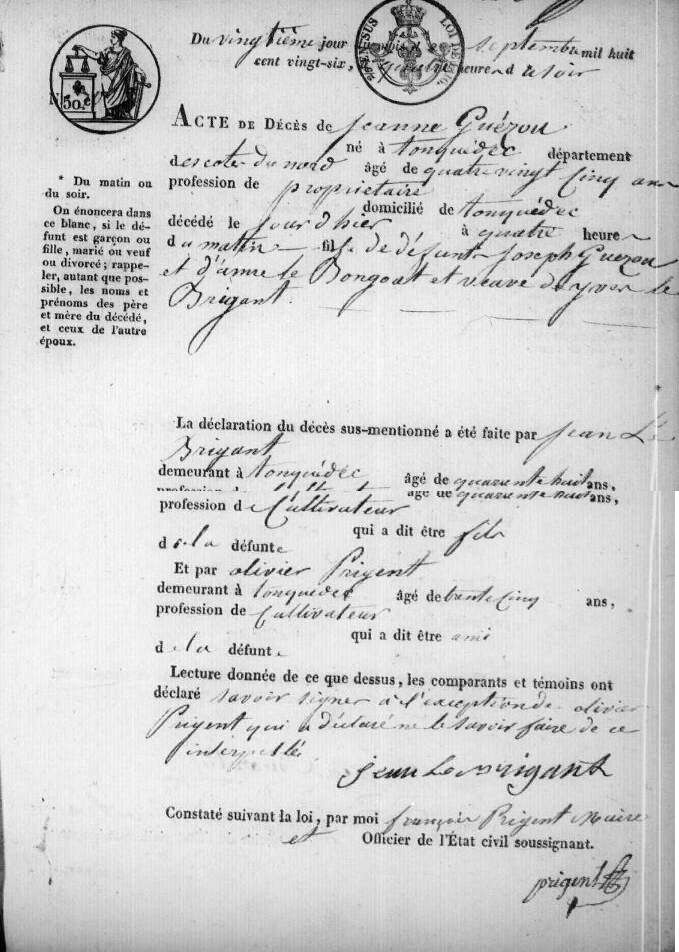 Du vingtième jour septembre mil huit
cent vingt-six, heure d u soir
N 50.c
ACTE DE DÉCÈS DE Jeanne Guézou
né à tonquédec département
des cotes du nord âgé de quatre vingt Cinq ans
profession de propriétaire
domicilié de tonquédec
décédé le jour d'hier à quatre heure
du matin fille de défunt Joseph Guézou
et d'anne le Bongoat et veuve de yves le
Brigant.
* Du matin ou
du soir.
On énoncera dans
ce blanc, si le dé-
funt est garçon ou
fille, marié ou veuf
ou divorcé ; rappe-
ler, autant que pos-
sible, les noms et
prénoms des père
et mère du décédé,
et ceux de l'autre
époux.
La déclaration du décès sus-mentionné a été faite par Jean Le
Brigant
demeurant à tonquédec âgé de quarante huit ans,
âgé de quarante huit ans,
profession de Cultivateur
qui a dit être fils
d e la défunte
Et par olivier Prigent
demeurant à tonquédec âgé de trente Cinq ans,
profession de Cultivateur
qui a dit être ami
d e la défunte
Lecture donnée de ce que dessus, les comparants et témoins ont
déclaré savoir signer à l'exception de olivier
Prigent qui a déclaré ne le savoir faire de ce
interpellé
Jean Le Brigant
Constaté suivant la loi, par moi françois Prigent Maire
et Officier de l'État civil soussignant.
prigent